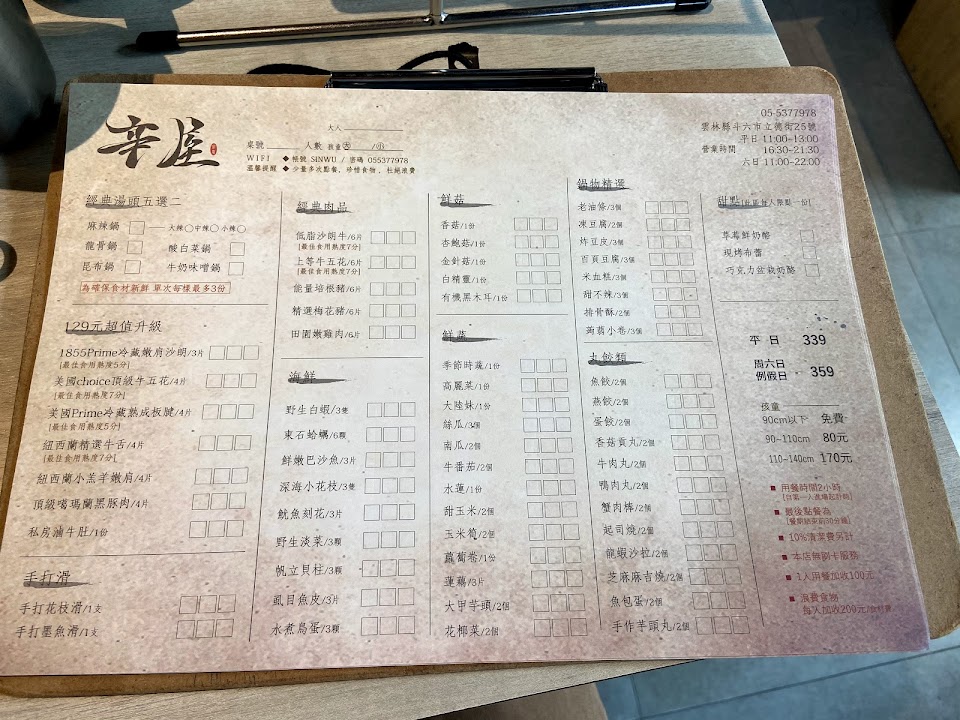 辛屋
大人
桌號 人數 孩童 大 /小
WIFI ◆ 帳號 SINWU / 密碼 055377978
溫馨提醒 ◆ 少量多次點餐，珍惜食物，杜絕浪費
05-5377978
雲林縣斗六市立德街25號
平日 11:00~13:00
營業時間 16:30~21:30
六日 11:00~22:00
經典湯頭五選二
麻辣鍋 大辣 中辣 小辣
龍骨鍋 酸白菜鍋
昆布鍋 牛奶味噌鍋
為確保食材新鮮 單次每樣最多3份
129元超值升級
1855Prime冷藏嫩肩沙朗/3片
[最佳食用熟度5分]
美國choice頂級牛五花/4片
[最佳食用熟度7分]
美國Prime冷藏熟成板腱/4片
[最佳食用熟度5分]
紐西蘭精選牛舌/4片
[最佳食用熟度7分]
紐西蘭小羔羊嫩肩/4片
頂級噶瑪蘭黑豚肉/4片
私房滷牛肚/1份
手打滑
手打花枝滑/1支
手打墨魚滑/1支
經典肉品
低脂沙朗牛/6片
[最佳食用熟度7分]
上等牛五花/6片
[最佳食用熟度7分]
能量培根豬/6片
精選梅花豬/6片
田園嫩雞肉/6片
海鮮
野生白蝦/3隻
東石蛤蠣/6顆
鮮嫩巴沙魚/3片
深海小花枝/3隻
魷魚刻花/3片
野生淡菜/3顆
帆立貝柱/3顆
虱目魚皮/3片
水煮鳥蛋/3顆
鮮菇
香菇/1份
杏鮑菇/1份
金針菇/1份
白精靈/1份
有機黑木耳/1份
鮮蔬
季節時蔬/1份
高麗菜/1份
大陸妹/1份
絲瓜/3個
南瓜/2個
牛番茄/2個
水蓮/1份
甜玉米/2個
玉米筍/2個
蘿蔔卷/1份
蓮藕/3片
大甲芋頭/2個
花椰菜/2個
鍋物精選
老油條/3個
凍豆腐/2個
炸豆皮/3個
百頁豆腐/3個
米血糕/3個
甜不辣/3個
排骨酥/2個
蒟蒻小卷/3個
丸餃類
魚餃/2個
燕餃/2個
蛋餃/2個
香菇貢丸/2個
牛肉丸/2個
鴨肉丸/2個
蟹肉棒/2個
起司燒/2個
龍蝦沙拉/2個
芝麻麻吉燒/2個
魚包蛋/2個
手作芋頭丸/2個
甜點
草莓鮮奶酪
現烤布蕾
巧克力盆栽奶酪
平 日 339
周六日 例假日 359
孩童
90cm以下 免費
90~110cm 80元
110~140cm 170元
■ 用餐時間2小時
■ 最後點餐為
■ 10%清潔費另計
■ 本店無刷卡服務
■ 1人用餐加收100元
■ 浪費食物
每人加收200元